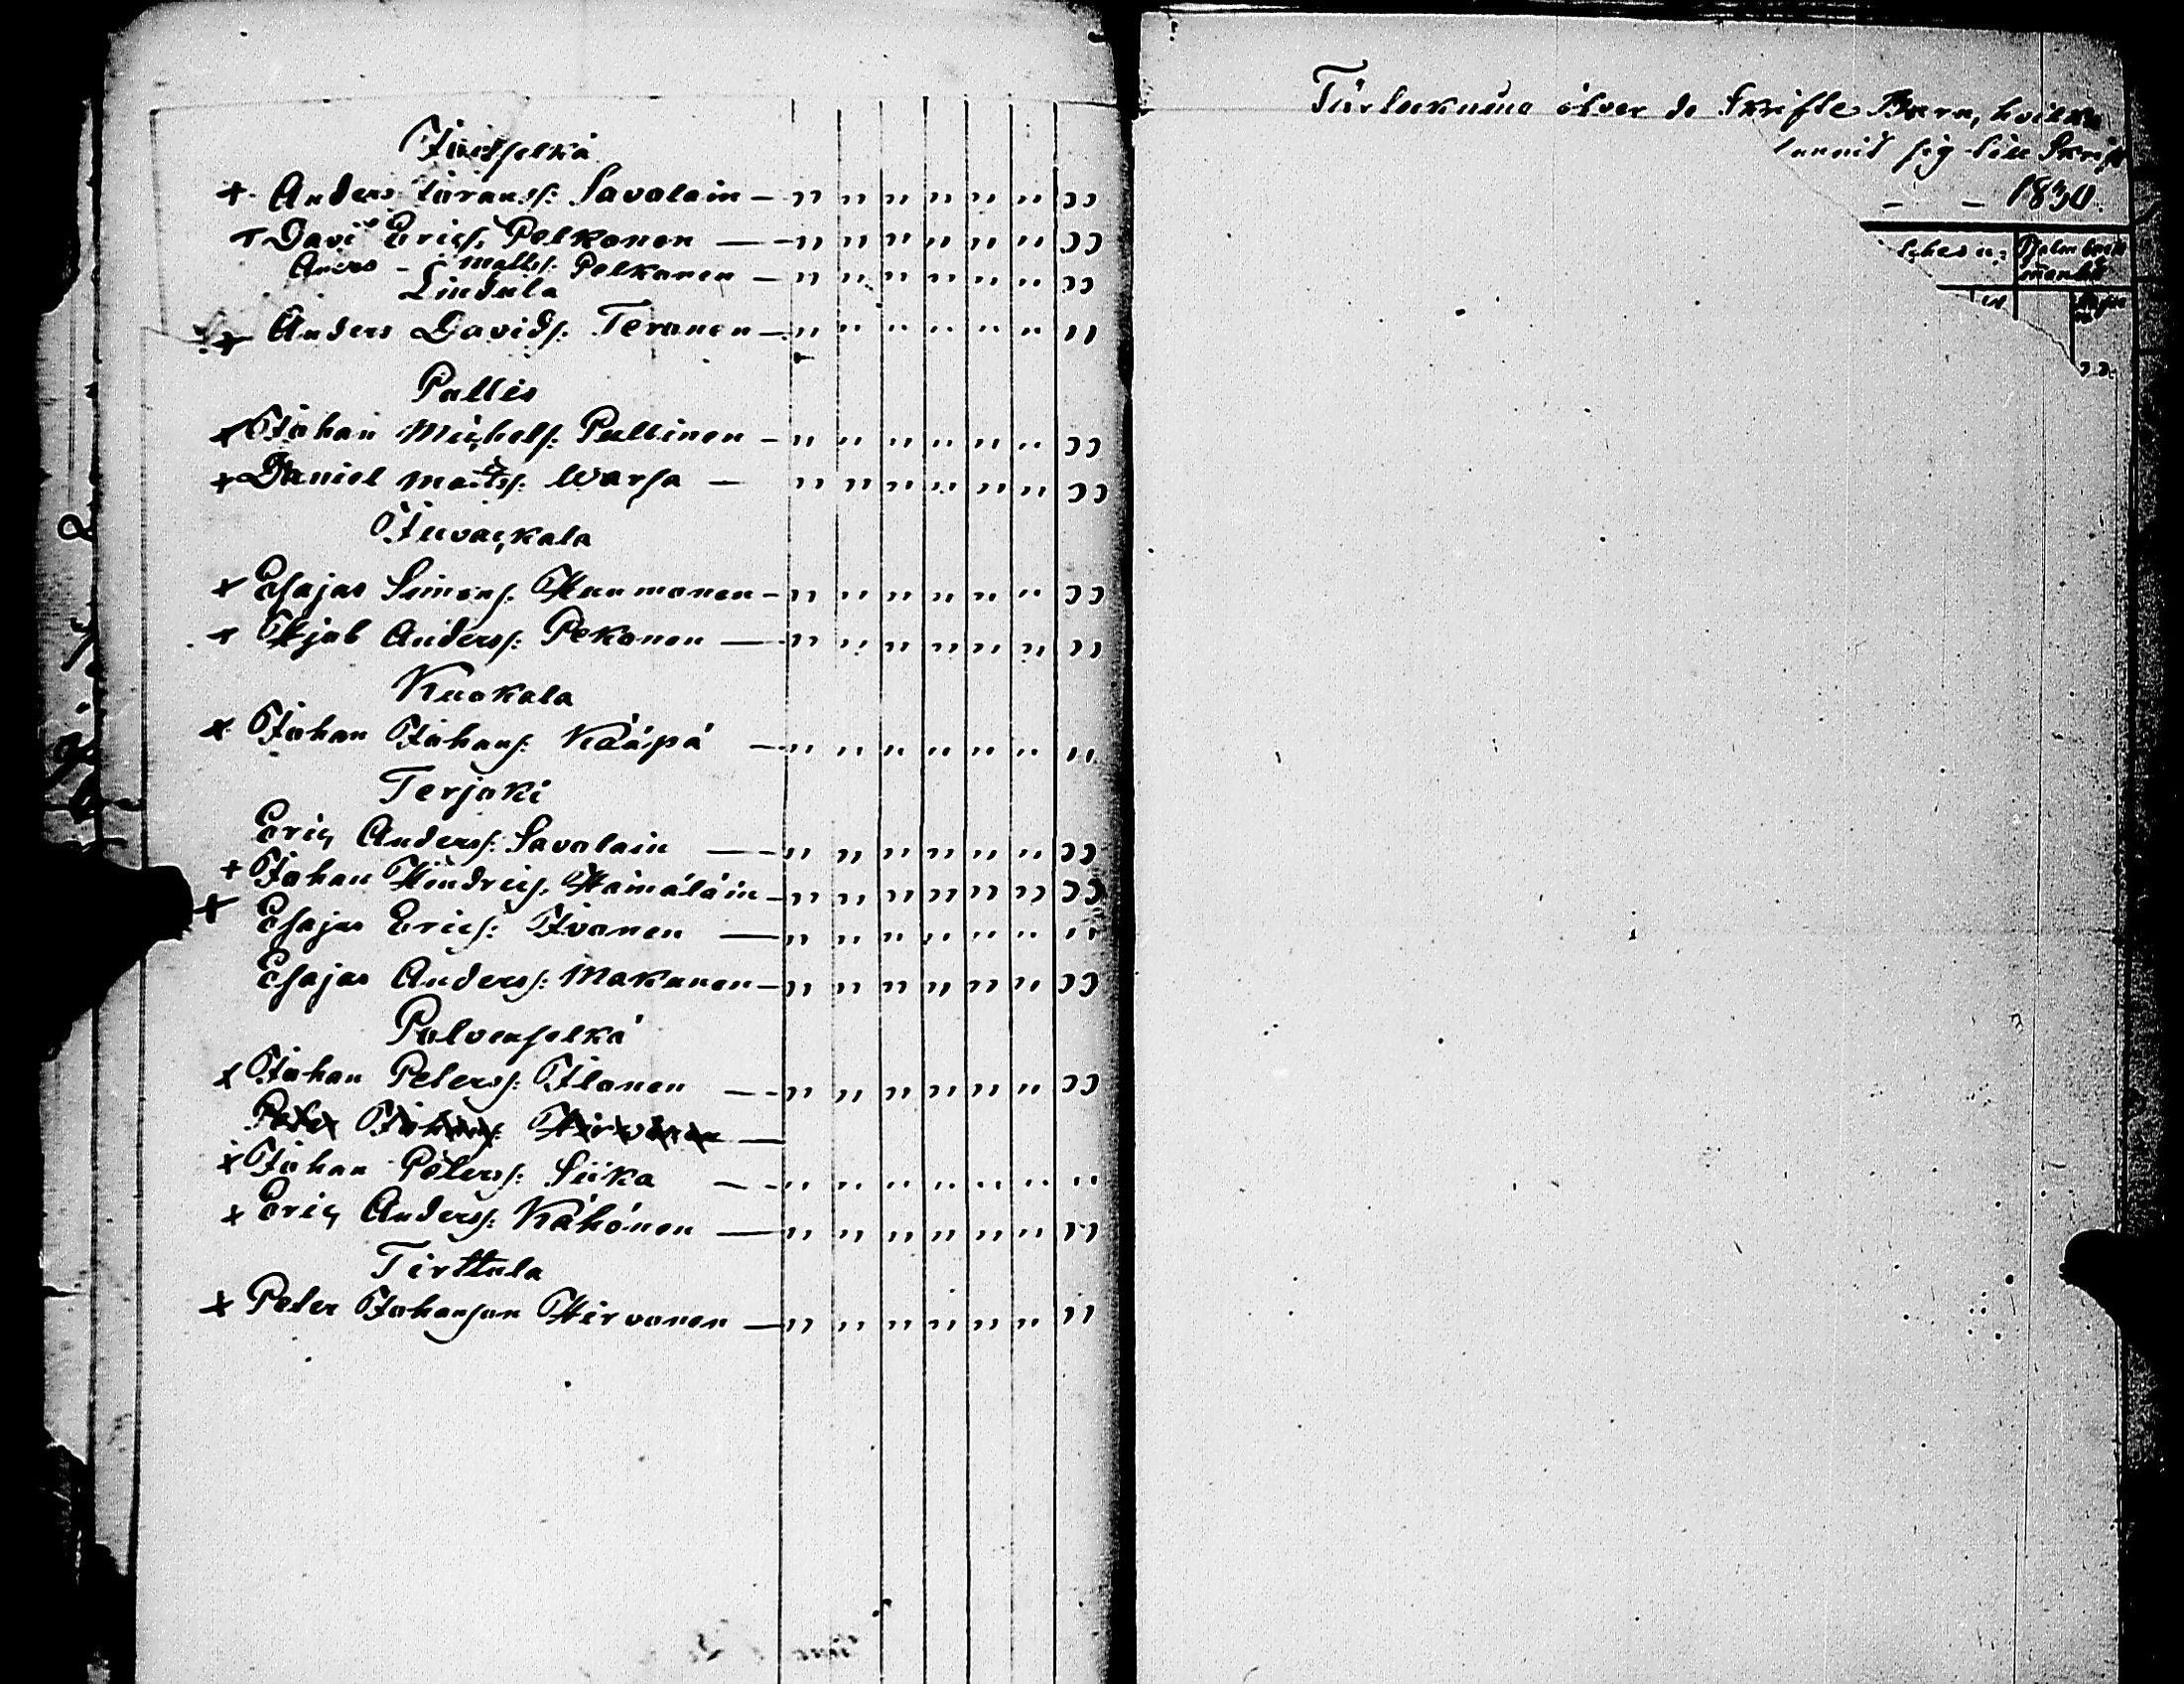 Jäeisselkä
+ Anders Göranss: Savolain — " " " " " " "
+ David Erics: Pelkonen — " " " " " " "
Anders - Matts: Pelkonen — " " " " " " "
Lindula
+ Anders Davids: Teronen — " " " " " " "
Pullis
+ Johan Michels: Pullinen — " " " " " " "
+ Daniel Matss: Warsa — " " " " " " "
Juvackala
+ Esajas Simons: Hanmonen — " " " " " " "
+ Hjob Anderss: Pekonen — " " " " " " "
Kuokala
+ Johan Johans: Kääpä — " " " " " " "
Terjoki
Eric Anderss: Savolain — " " " " " " "
+ Johan Hindrics: Hämäläin — " " " " " " "
+ Esajas Erics: Ivonen — " " " " " " "
Esajas Anderss: Makonen — " " " " " " "
Polvenselkä
+ Johan Peterss: Ilonen — " " " " " " "
Peter Johans: Hirvonen —
+ Johan Peterss: Siika — " " " " " " "
+ Eric Anderss: Kähönen — " " " " " " "
Tirttula
+ Peter Johansson Hirvonen — " " " " " " "
Förteckning öfver de Skrifte Barn, hvilka
sig till Skrift
— — 1830.